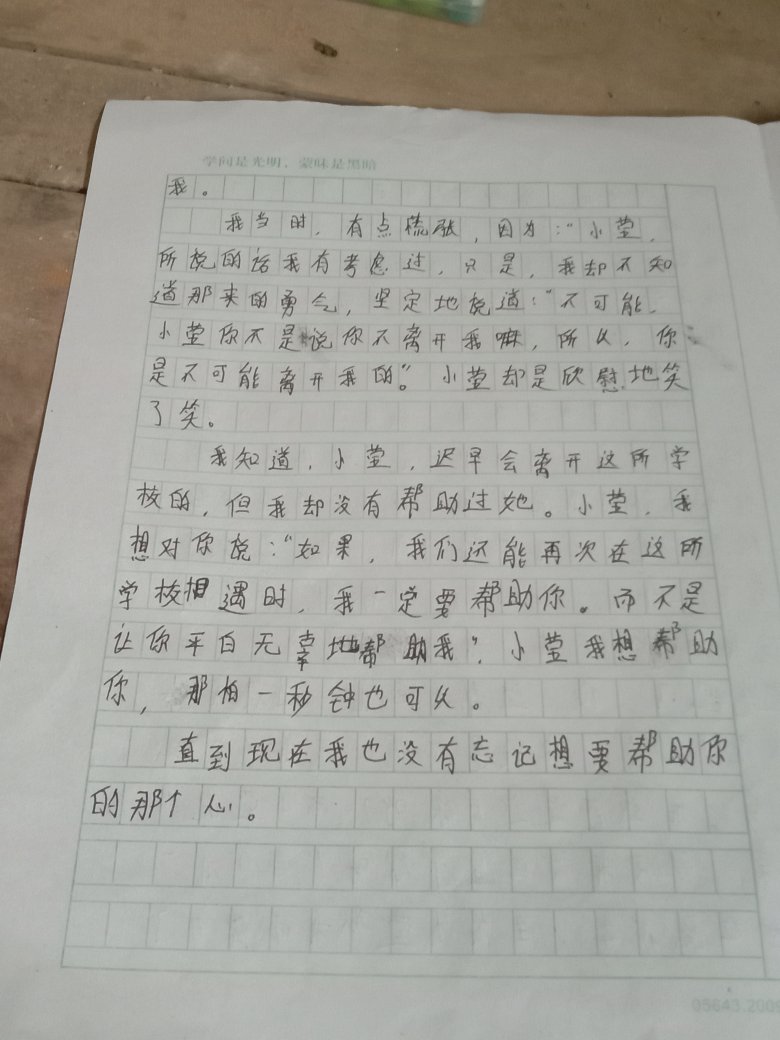 学问是光明，蒙昧是黑暗
我。
我当时，有点慌张，因为："小莹，
所说的话我有考虑过，只是，我却不知
道那来的勇气，坚定地说道："不可能，
小莹你不是说你不离开我嘛，所以，你
是不可能离开我的。"小莹却是欣慰地笑
了笑。
我知道，小莹，迟早会离开这所学
校的，但我却没有帮助过她。小莹，我
想对你说："如果，我们还能再次在这所
学校相遇时，我一定要帮助你。而不是
让你平白无辜地帮助我"，小莹我想帮助
你，那怕一秒钟也可以。
直到现在我也没有忘记想要帮助你
的那个心。
05643.2009